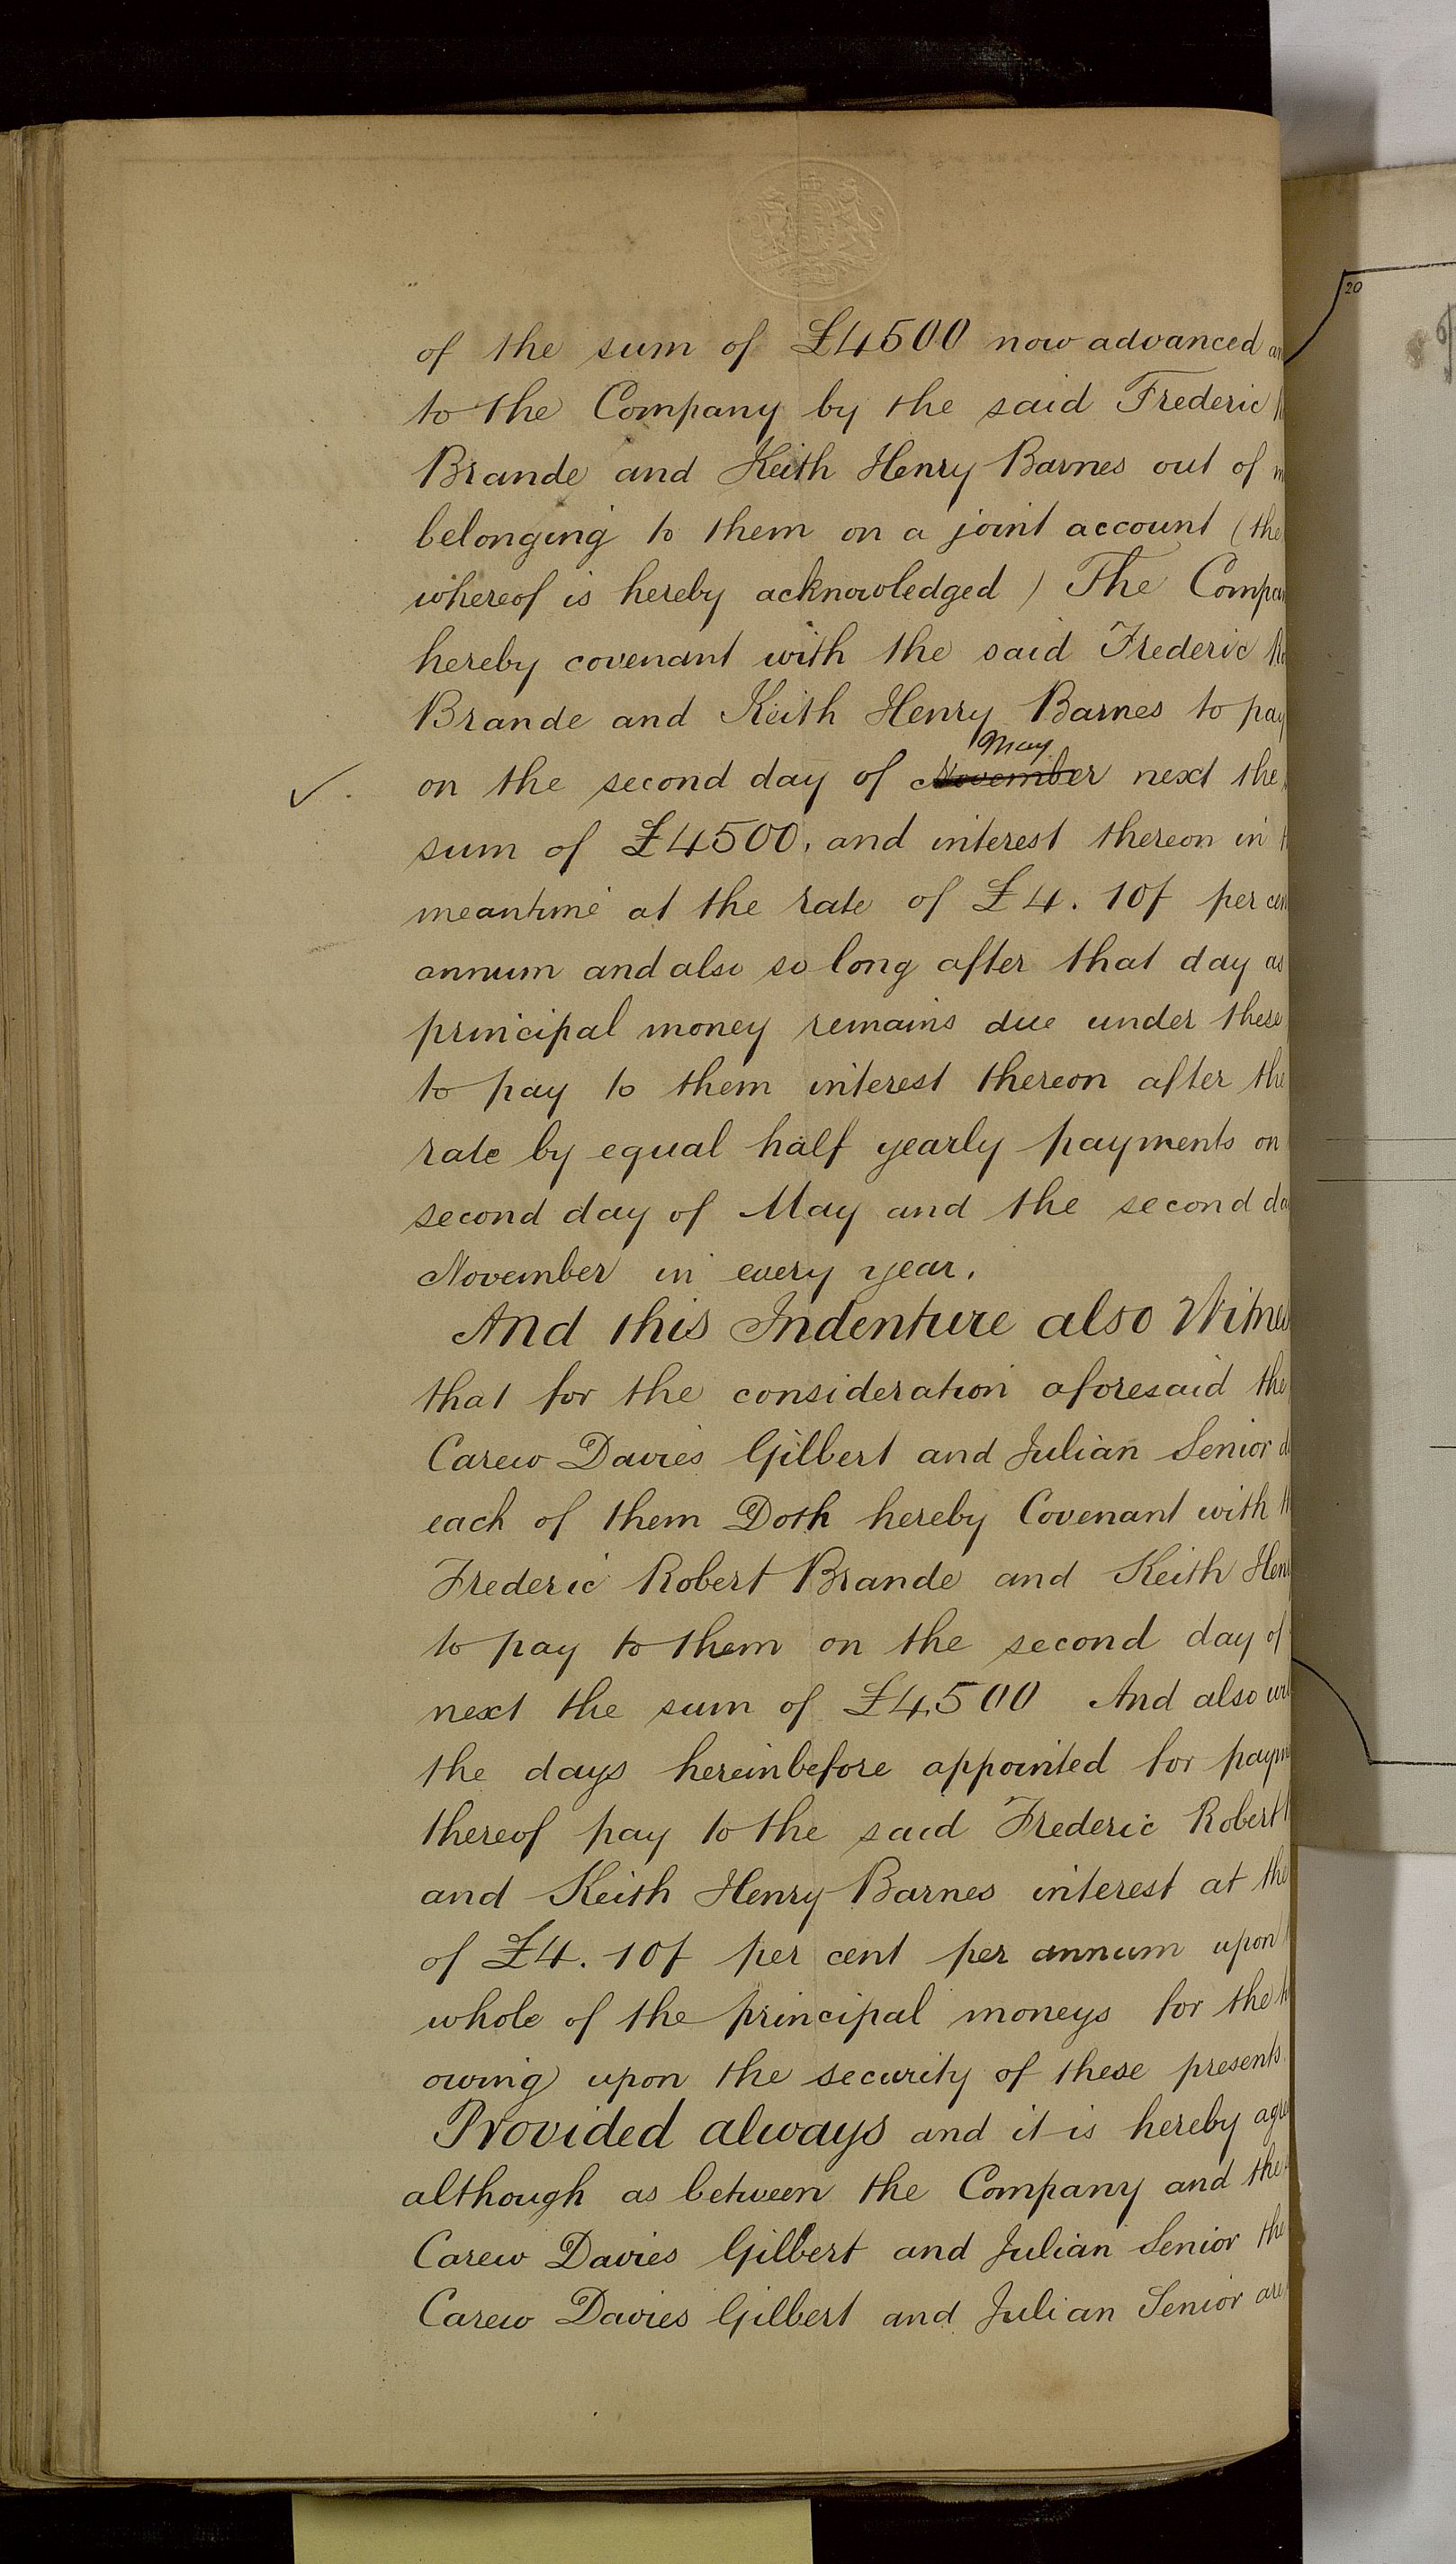 20
of the sum of £4500 now advanced
to the Company by the said Frederic
Brande and Keith Henry Barnes out of
belonging to them on a joint account (the
whereof is hereby acknowledged) The Compan
hereby covenant with the said Frederic Ro
Brande and Keith Henry Barnes to pay
May
on the second day of November next the
sum of £4500, and interest thereon in
meantime at the rate of £4. 10/ per cen
annum and also so long after that day as
principal money remains due under these
to pay to them interest thereon after the
rate by equal half yearly payments on
second day of May and the second da
November in every year.
And this Indenture also Witnes
that for the consideration aforesaid the
Carew Davies Gilbert and Julian Senior d
each of them Doth hereby Covenant with
Frederic Robert Brande and Keith Hen
to pay to them on the second day of
next the sum of £4,500 And also
the days hereinbefore appointed for paym
thereof pay to the said Frederic Robert
and Keith Henry Barnes interest at the
of £4. 10/ per cent per annum upon
whole of the principal moneys for the
owing upon the security of these presents
Provided always and it is hereby agre
although as between the Company and the
Carew Davies Gilbert and Julian Senior the
Carew Davies Gilbert and Julian Senior are